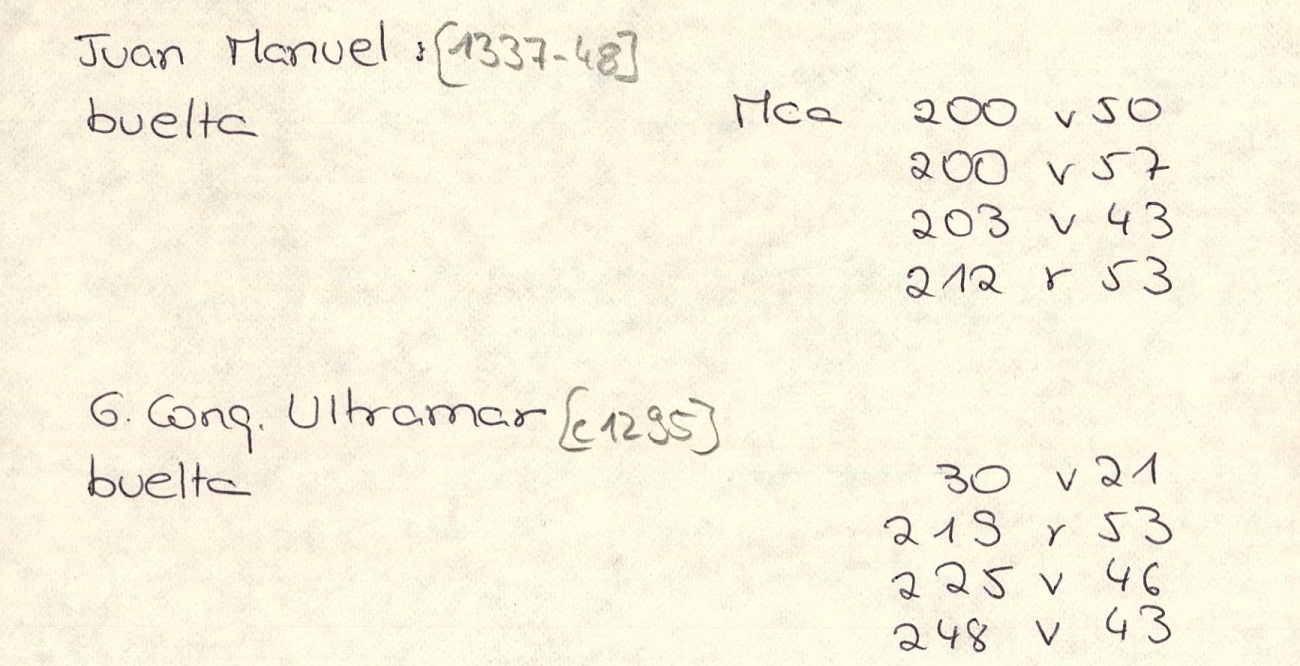 Juan Manuel : [1337-48]
buelta Mca 200 v 50
200 v 57
203 v 43
212 r 53
G. Conq. Ultramar [c1295]
buelta 30 v 21
219 r 53
225 v 46
248 v 43